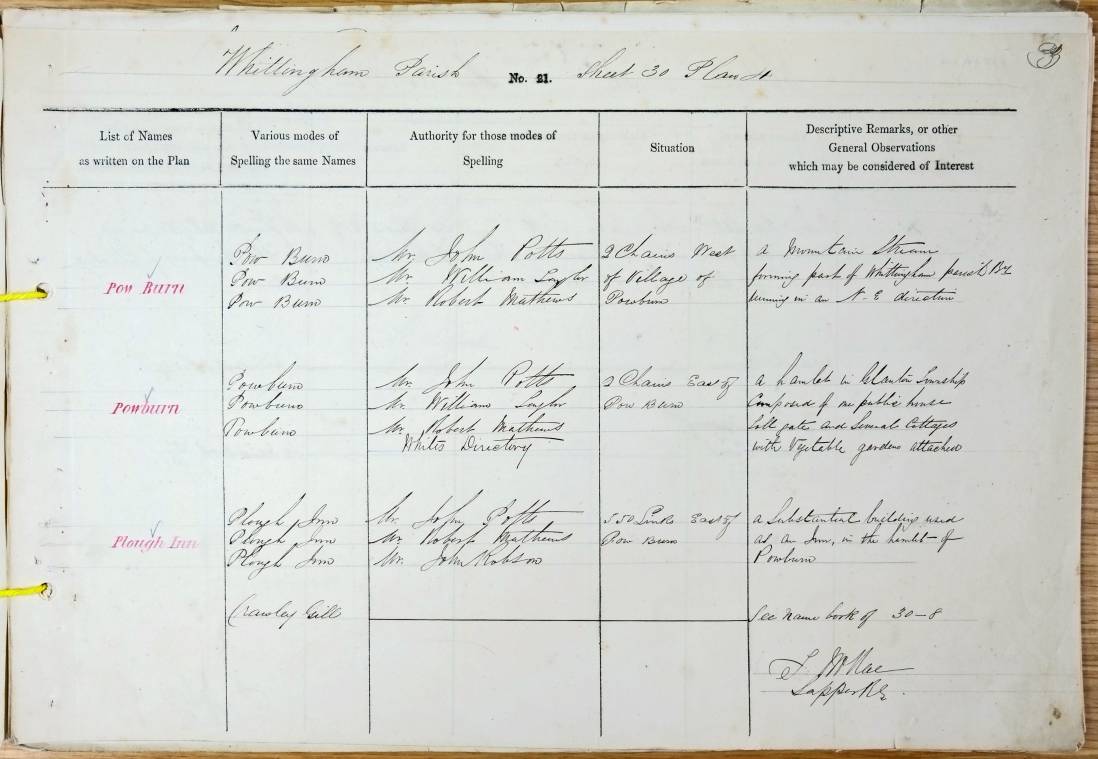 3
Whittingham Parish No. 21. Sheet 30 Plan
List of Names
as written on the Plan
Various modes of
Spelling the same Names
Authority for those modes of
Spelling
Situation
Descriptive Remarks, or other
General Observations
which may be considered of Interest
Pow Burn
Pow Burn
Pow Burn
Pow Burn
Mr. John Potts
Mr. William
Mr. Robert Mathews
2 Chains West
of Village of
Powburn
a Mountain Stream
forming part of Whittingham parish
running in an N-E direction
Powburn
Powburn
Powburn
Powburn
Mr. John Potts
Mr. William
Mr. Robert Mathews
Whites Directory
2 Chains East of
Pow Burn
a hamlet in Glanton Township
Composed of one public house
toll gate and Several Cottages
with Vegetable gardens attached
Plough Inn
Plough Inn
Plough Inn
Plough Inn
Mr. John Potts
Mr. Robert Mathews
Mr. John Robson
550 Links East of
Pow Burn
a Substantial building used
as an Inn, in the hamlet of
Powburn
Crawley Gill
See name book of 30-8
McRae
Sapper RE.